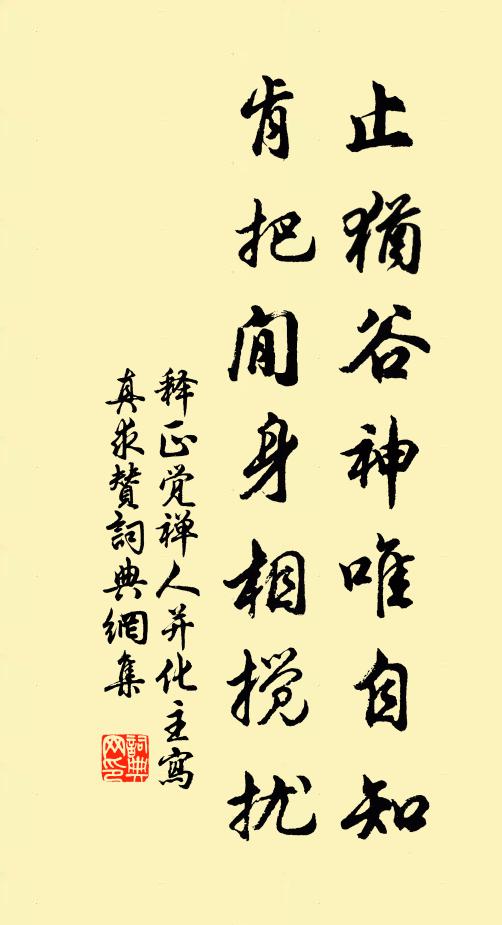 止犹谷神唯自知
肯把闲身相搅扰
释正觉禅人并化主写
真求赞词典網集
詞典網印